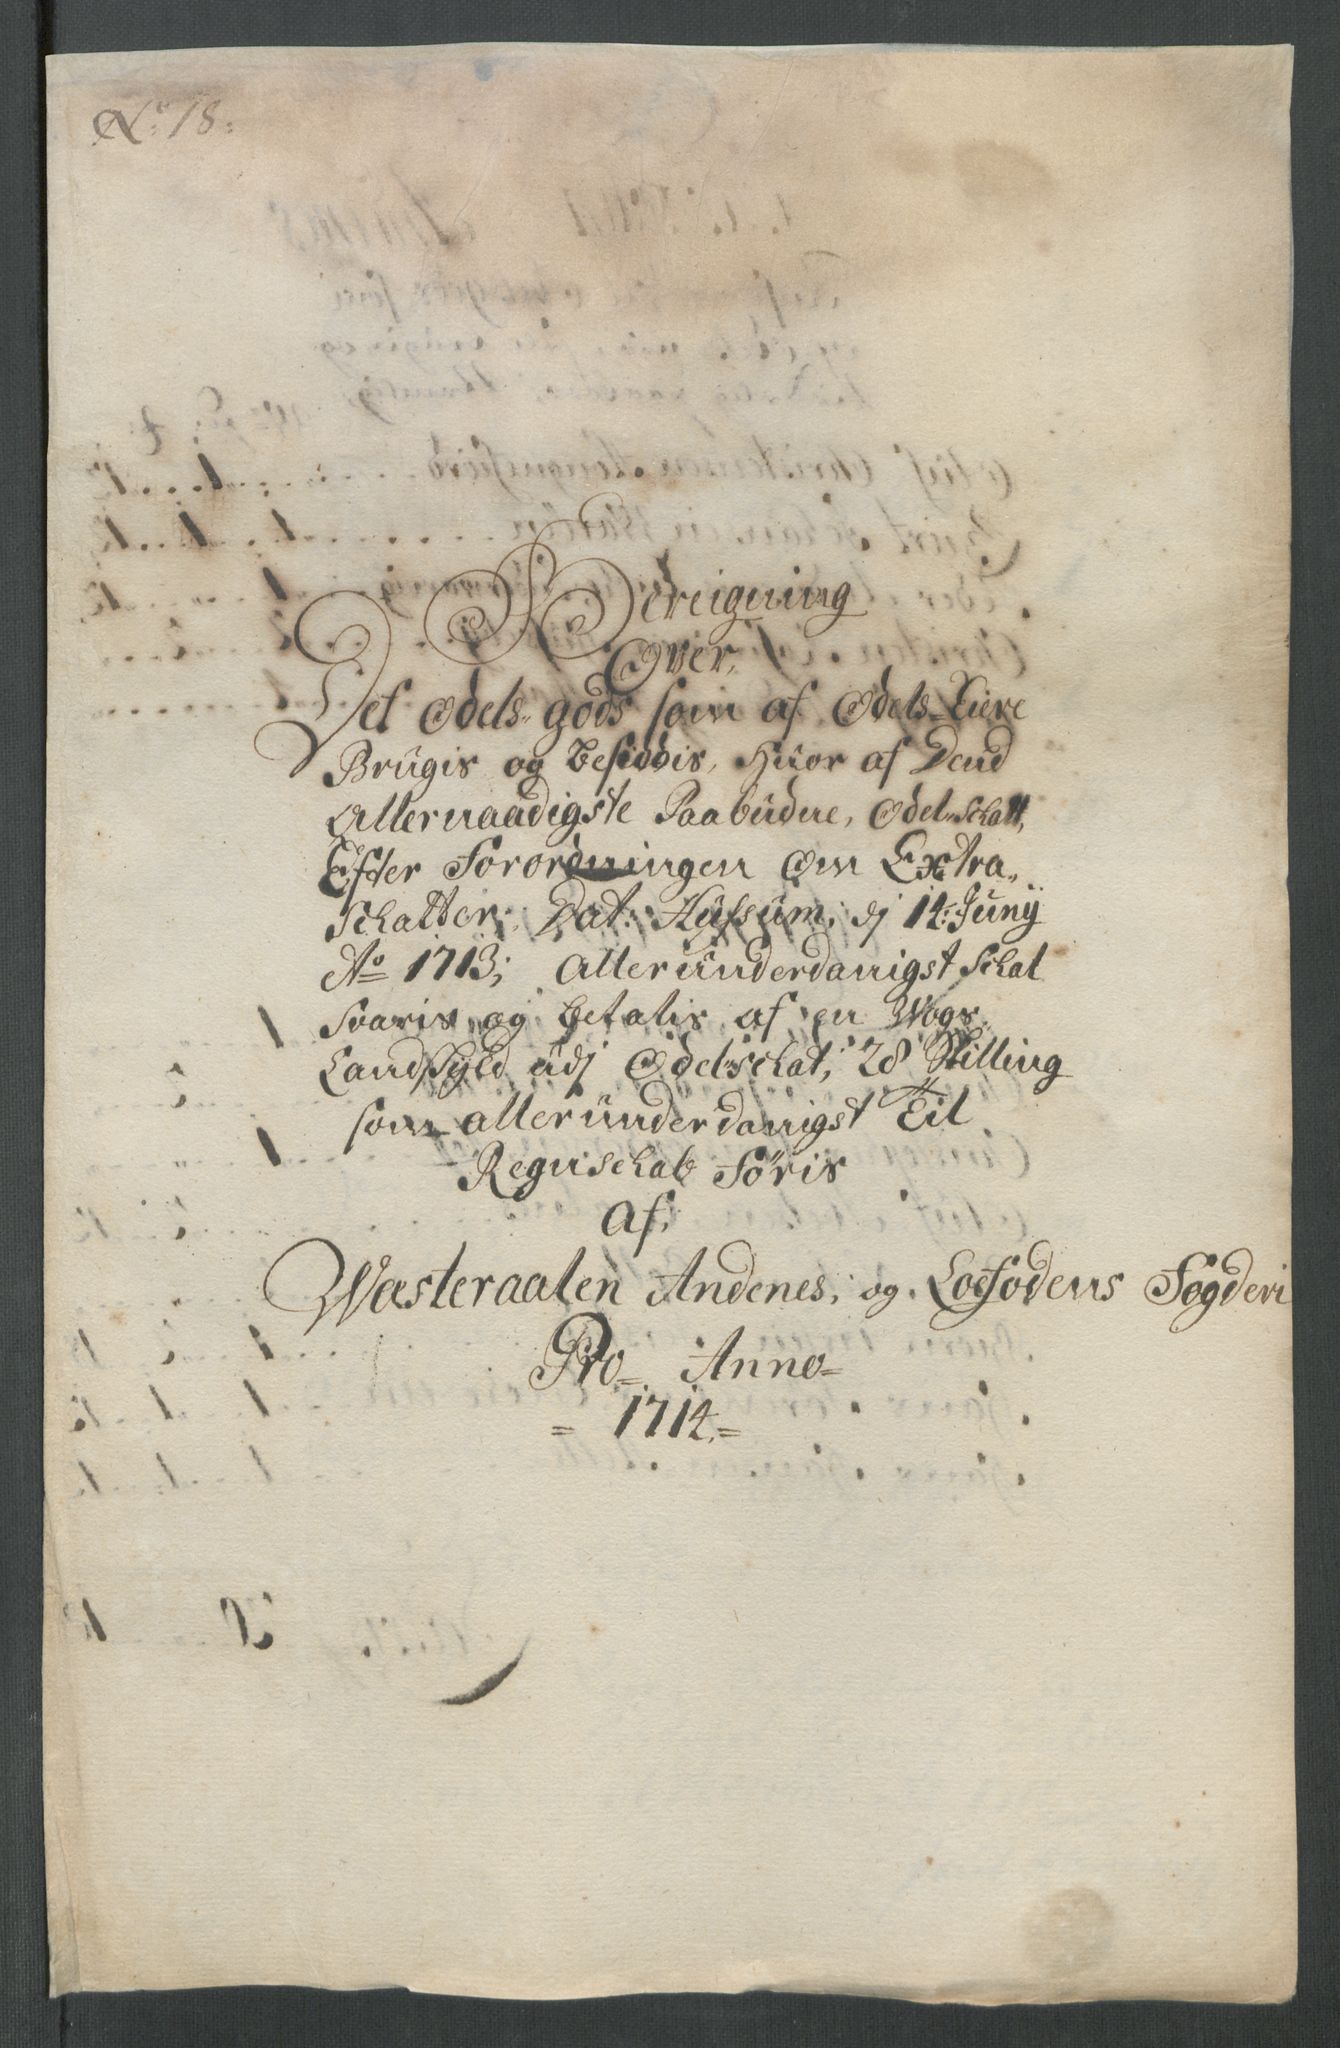 No: 18:
Bereigning
Over,
Det Odels-gods som af Odels-Eiere
Brugis og besiddis, Huor af Dend
Allernaadigste Paabudne, Odel-schatt,
Efter Forordningen Om Extra-
Schatter, Dat: Hussum, dj 14: Junij
Ao 1713; allerunderdanigst schal
svaris og betalis af en Wogs
Landskyld udj Odelschat, 28 skilling
som allerunderdanigst Til
Regnschab Føris
af,
Wæsteraalen Andenes, og Loefodens Fogderi
Pro Anno
= 1714. =